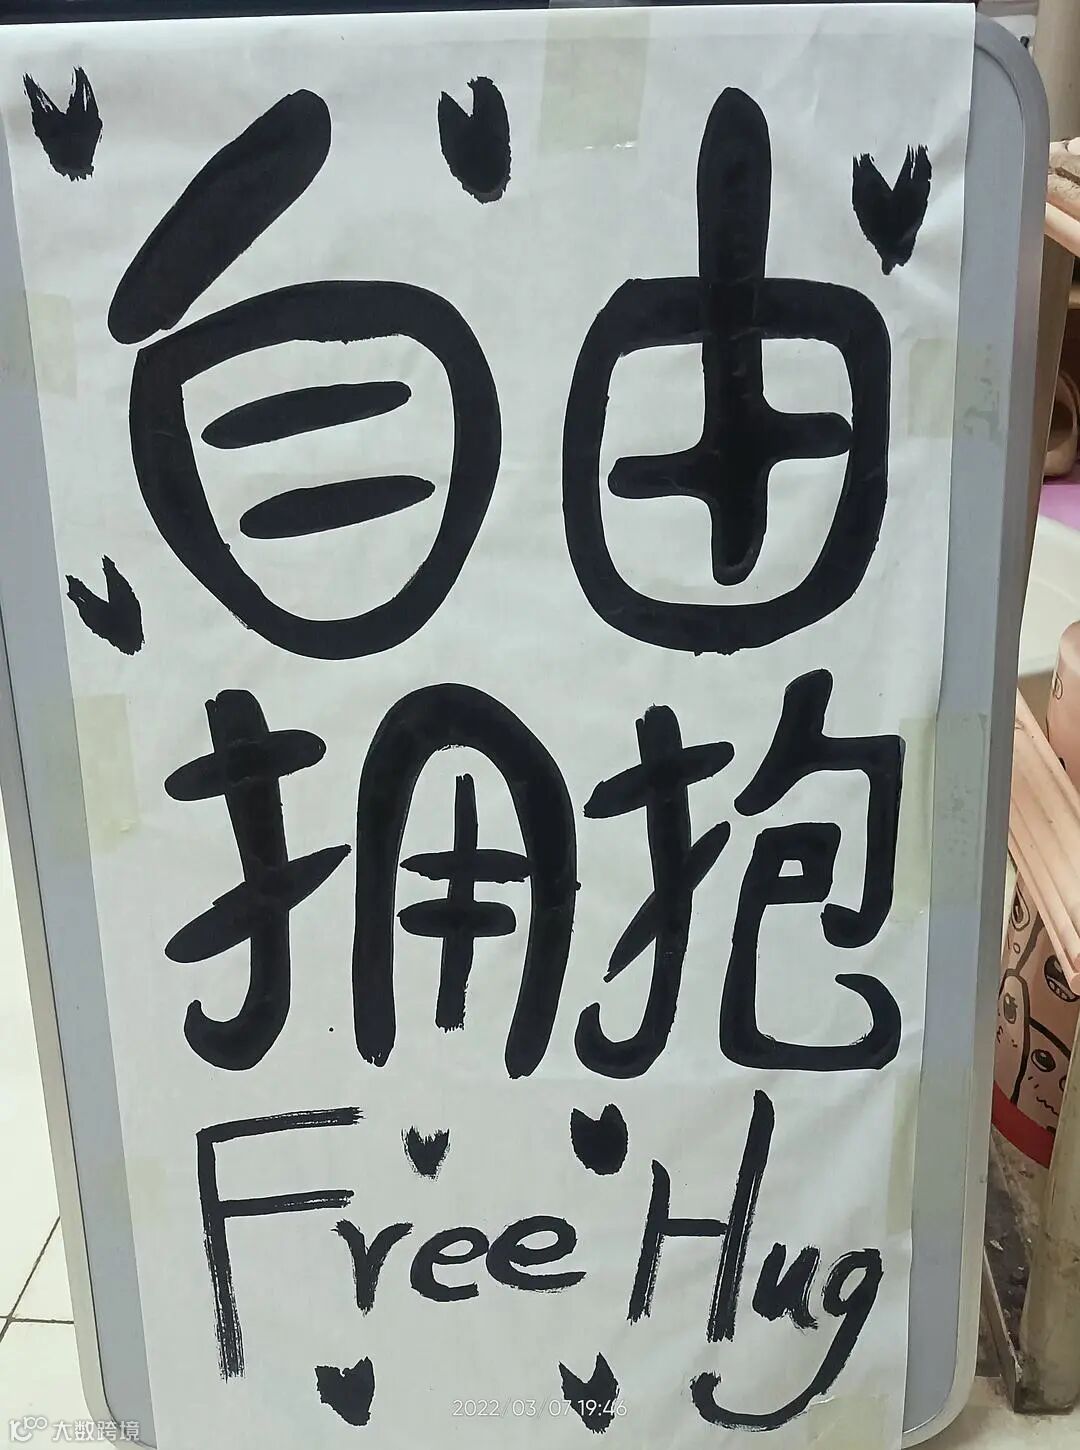 自由
拥抱
Free Hug
2022/03/07 19:46
大数跨境